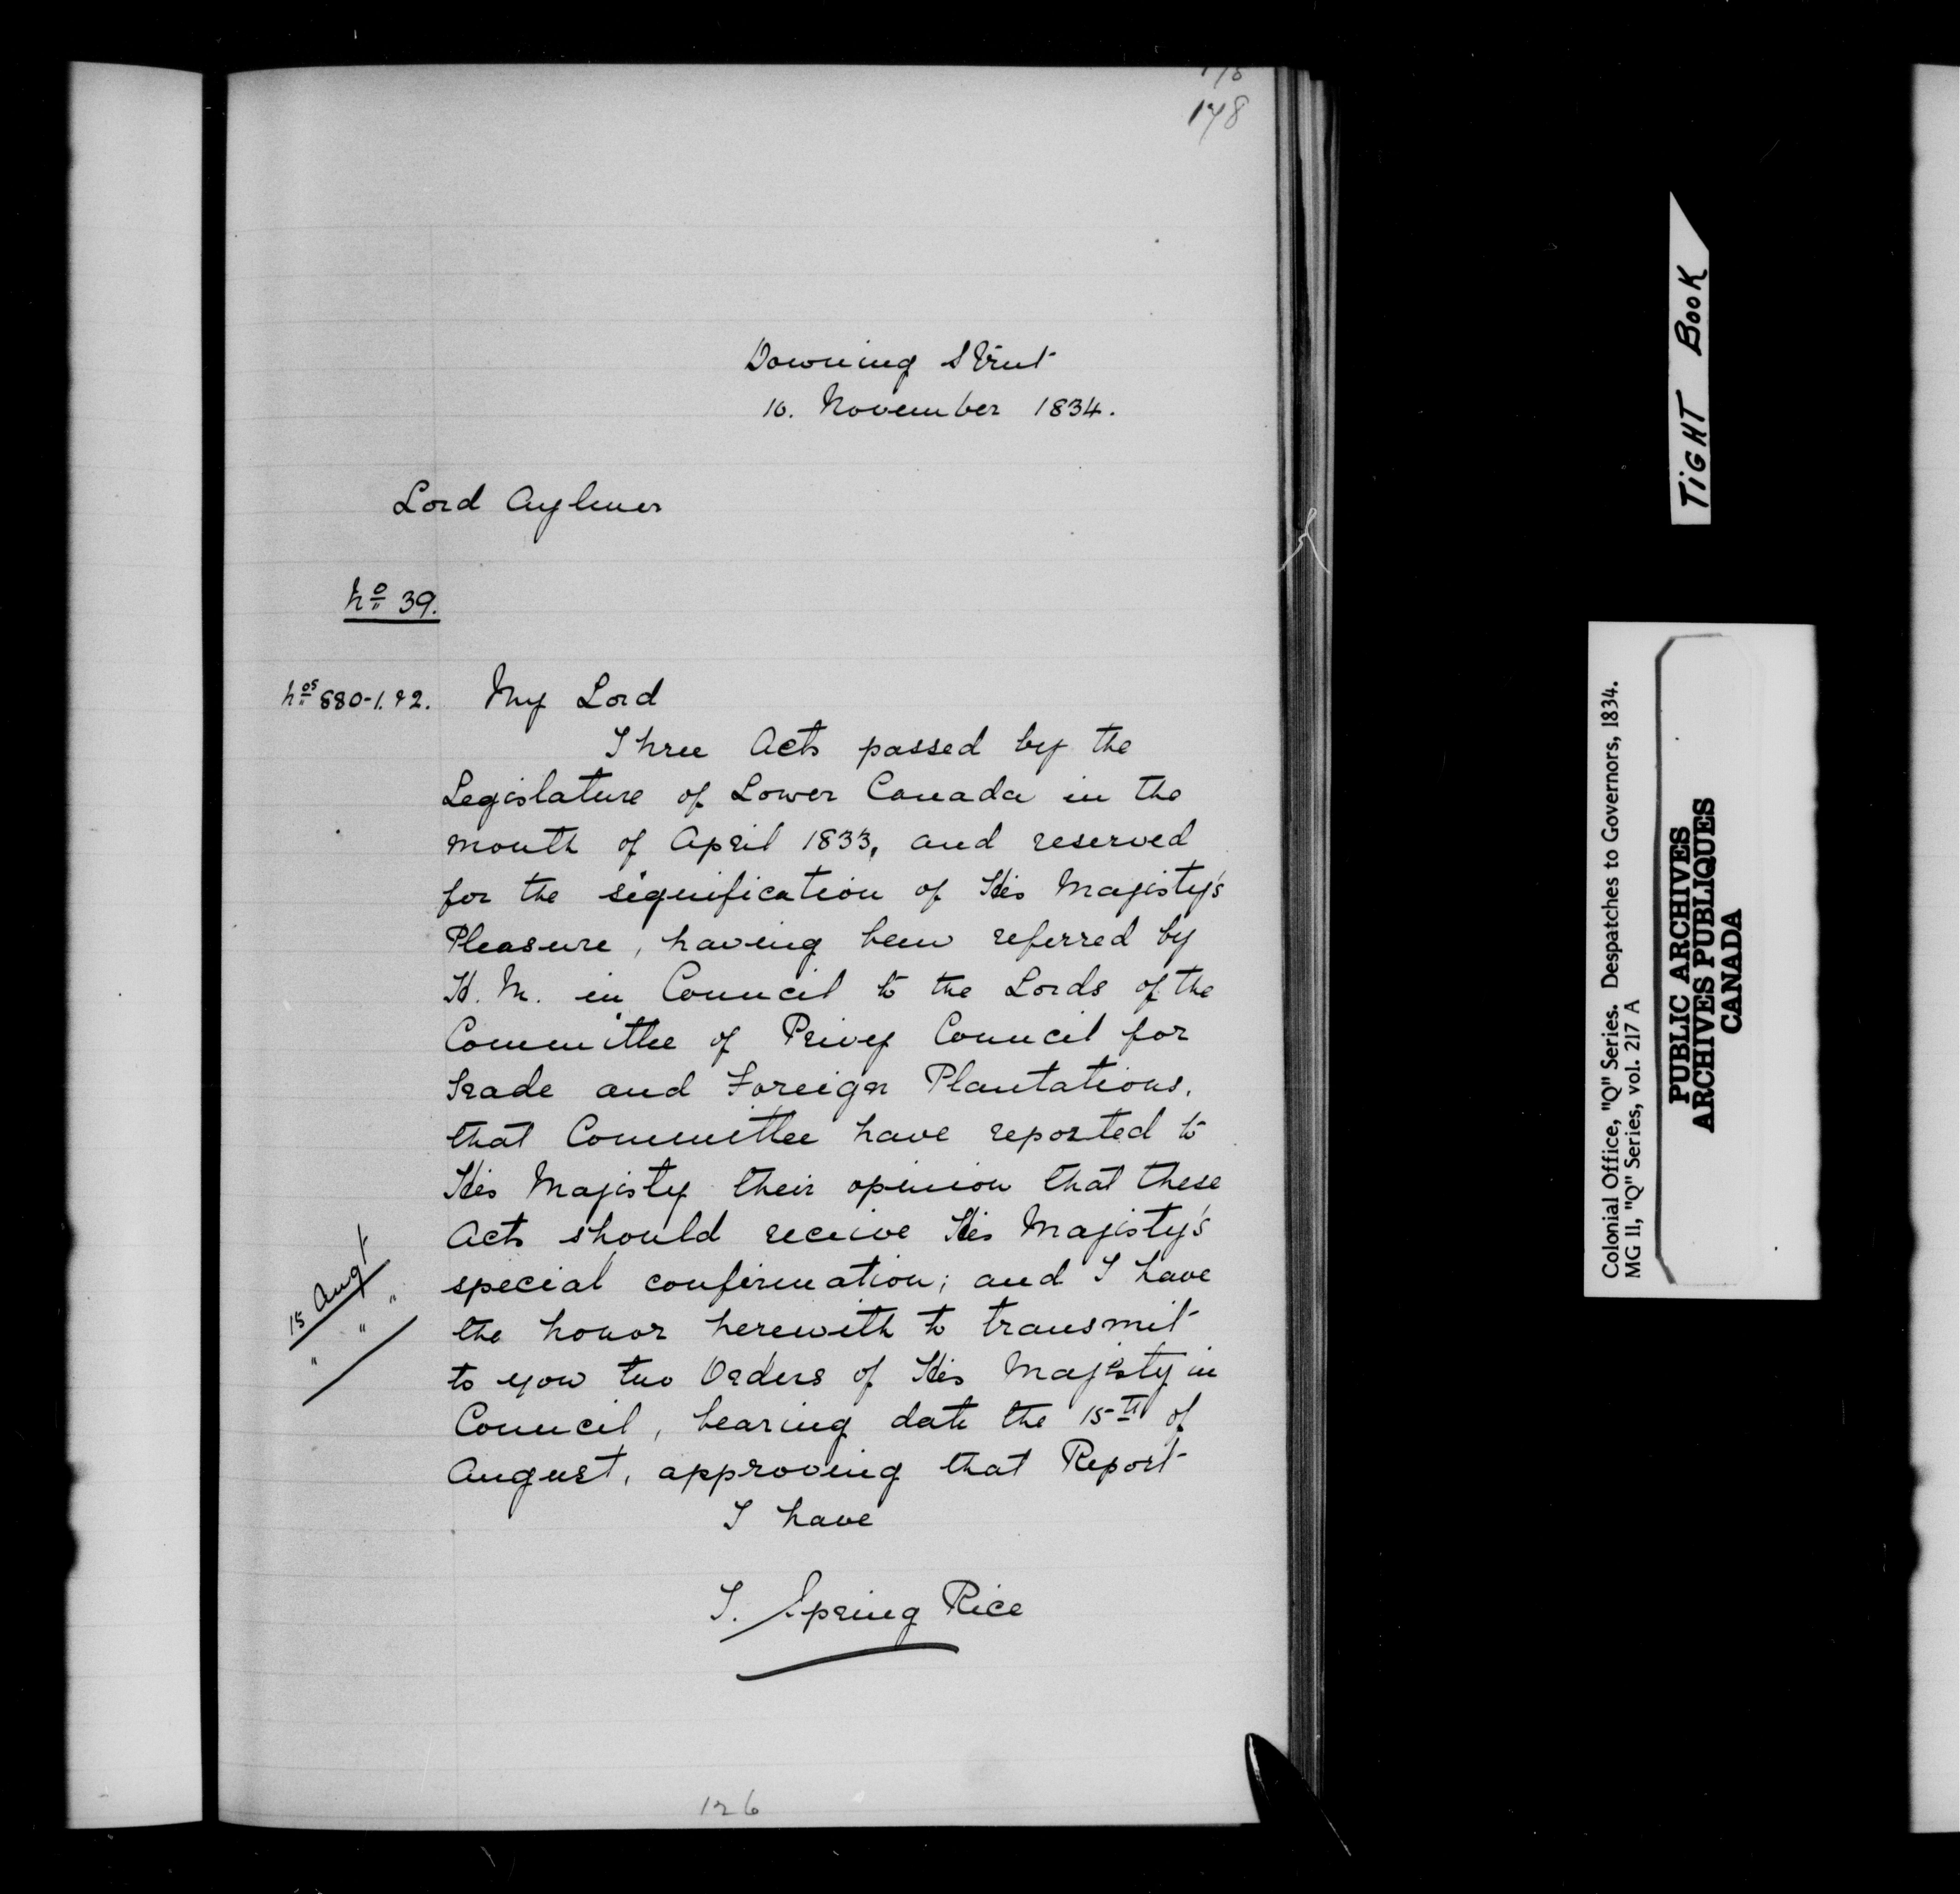 178
Downing Street
16. November 1834.
Lord Aylmer
No 39.
Nos 880-1. & 2. My Lord
Three Acts passed by the
Legislature of Lower Canada in the
month of April 1833, and reserved
for the signification of His Majesty's
Pleasure, having been referred by
H. M. in Council to the Lords of the
Committee of Privy Council for
Trade and Foreign Plantations,
that Committee have reported to
His Majesty their opinion that these
Acts should receive His Majesty's
special confirmation; and I have
15 Augt
" " "
the honor herewith to transmit
to you two Orders of His Majesty in
Council, bearing date the 15th of
August, approving that Report
I have
T. Spring Rice
126
TIGHT BOOK
Colonial Office, "Q" Series. Despatches to Governors, 1834.
MG 11, "Q" Series, vol. 217 A
PUBLIC ARCHIVES
ARCHIVES PUBLIQUES
CANADA